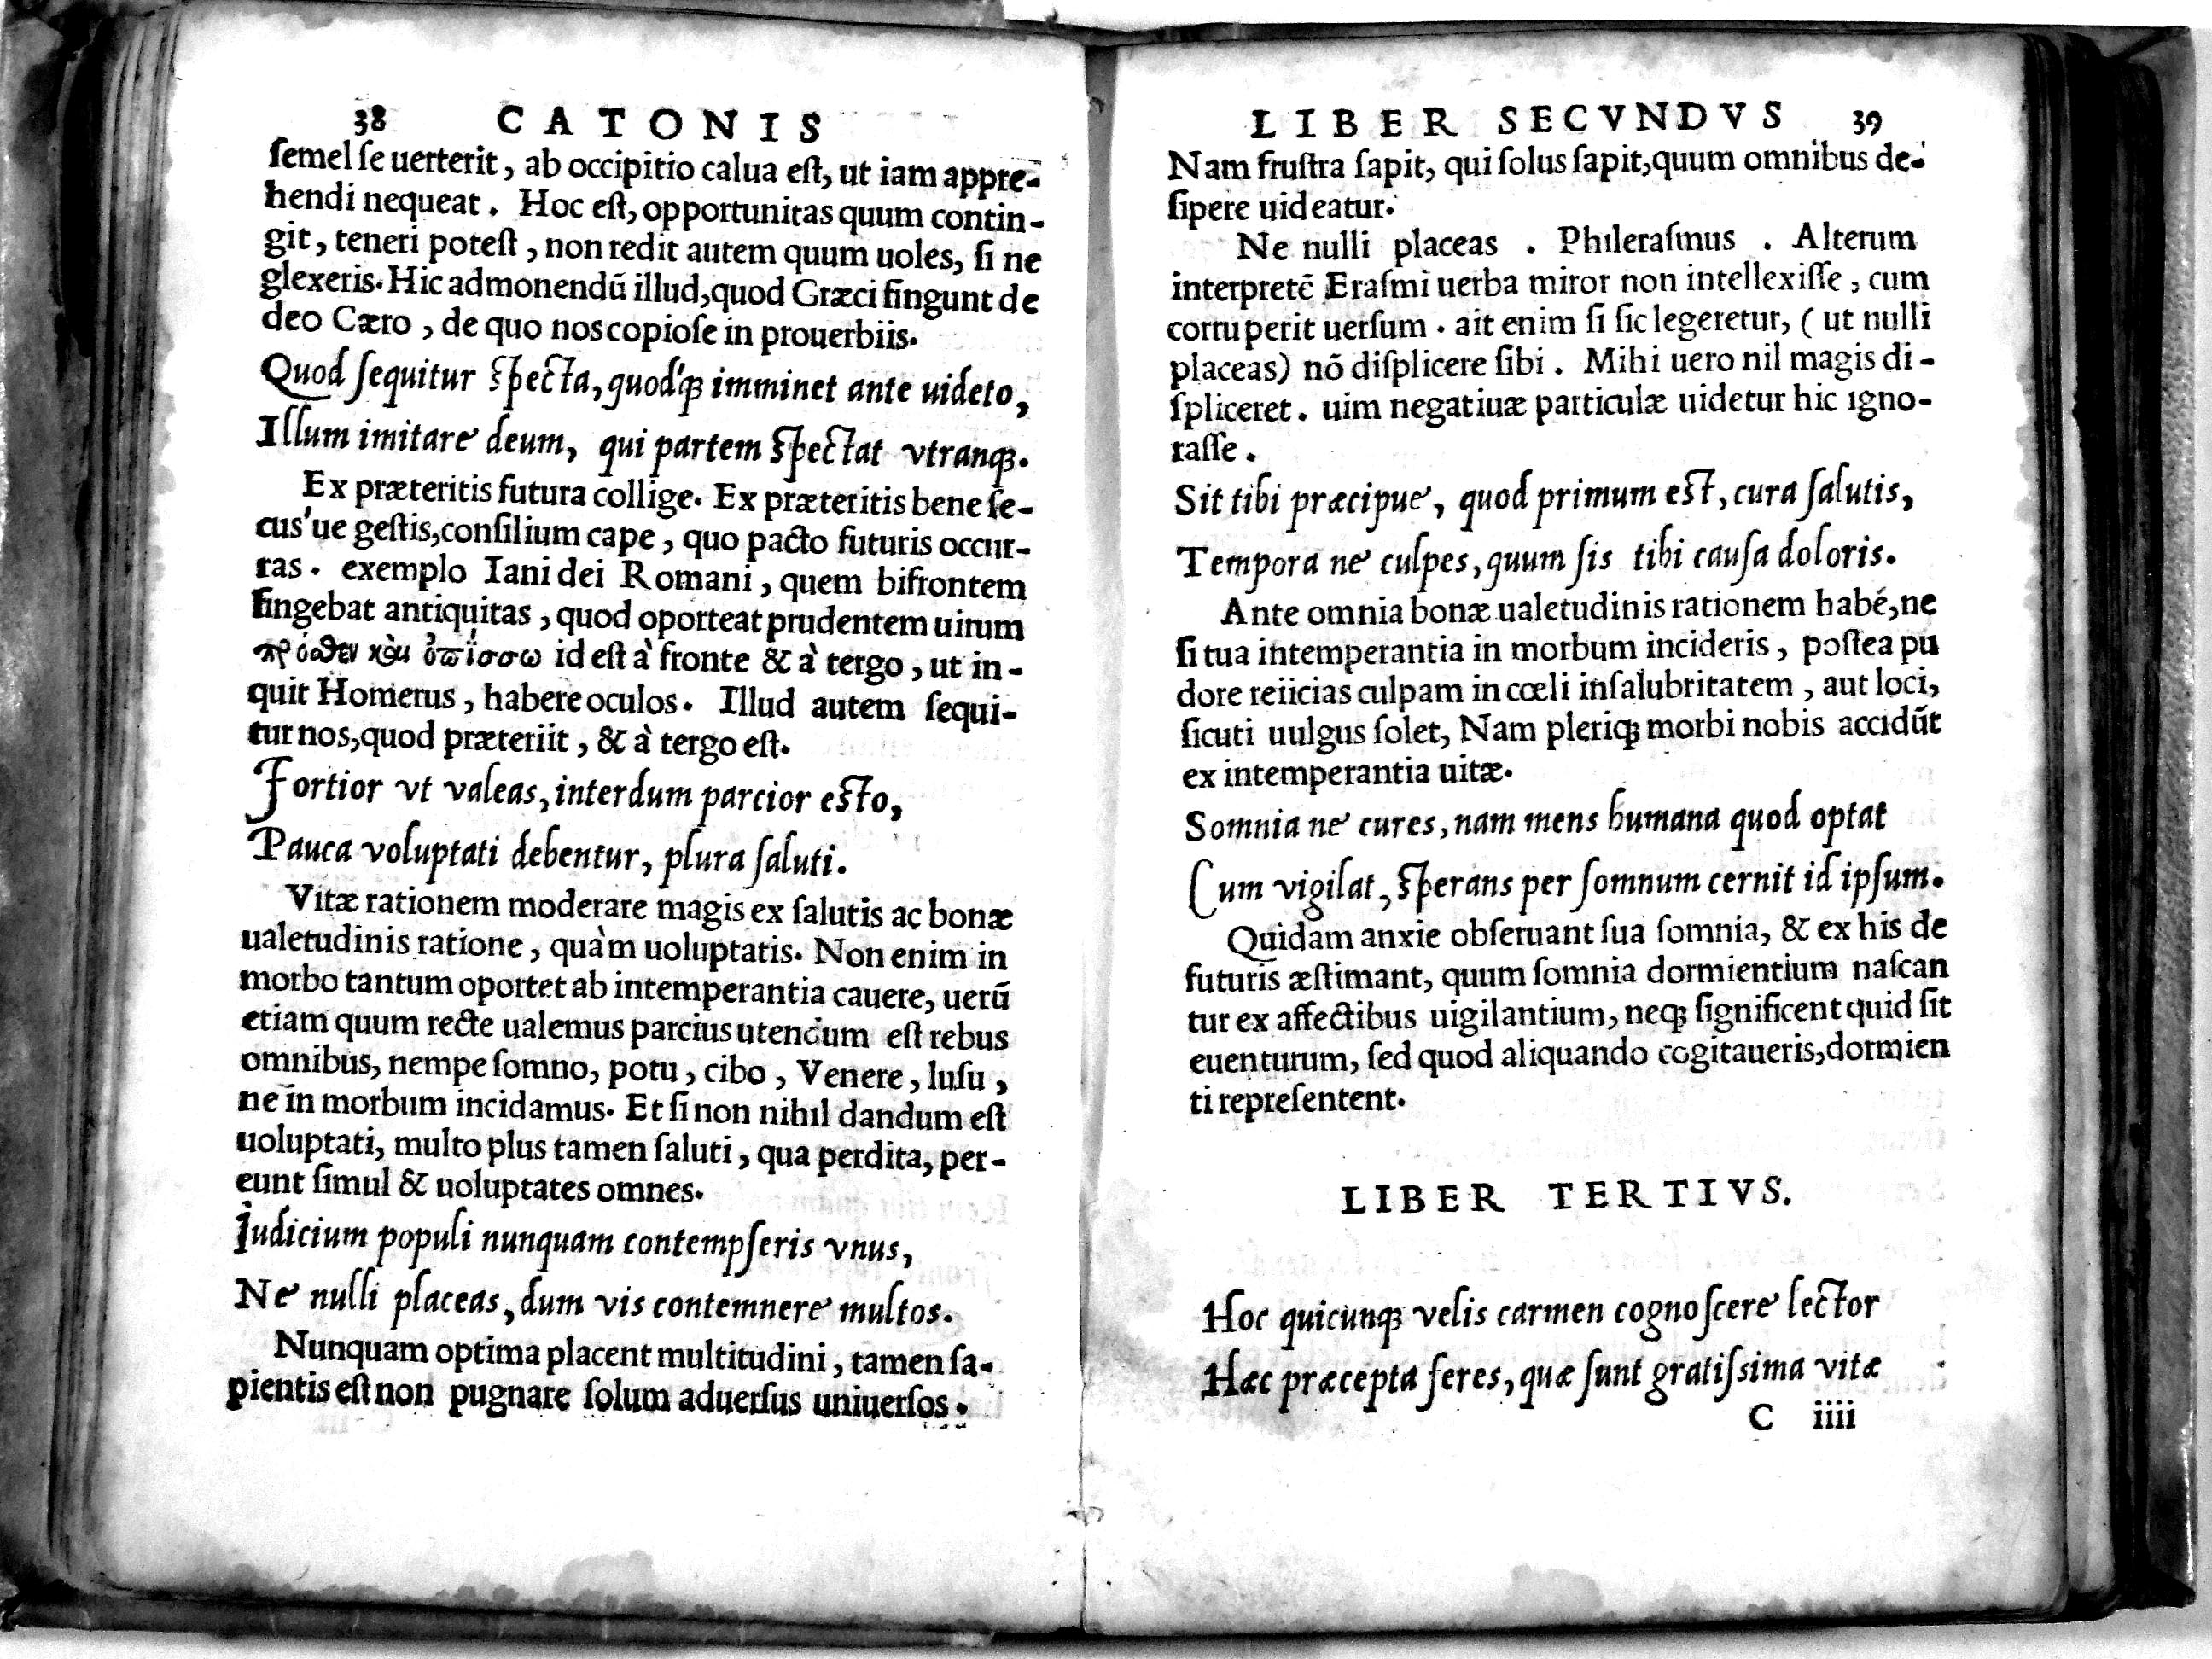 38 CATONIS
ſemel ſe uerterit, ab occipitio calua eſt, ut iam appre-
hendi nequeat. Hoc eſt, opportunitas quum contin-
git, teneri poteſt, non redit autem quum uoles, ſi ne
glexeris. Hic admonendũ illud, quod Græci fingunt de
deo Cæro, de quo nos copioſe in prouerbiis.
Quod ſequitur ſpecta, quod'q; imminet ante uideto,
Illum imitare deum, qui partem ſpectat vtranq;.
Ex præteritis futura collige. Ex præteritis bene ſe-
cus'ue geſtis, conſilium cape, quo pacto futuris occur-
ras. exemplo Iani dei Romani, quem bifrontem
fingebat antiquitas, quod oporteat prudentem uirum
πρόσθεν καὶ ὀπίσσω id eſt à fronte & à tergo, ut in-
quit Homerus, habere oculos. Illud autem ſequi-
tur nos, quod præteriit, & à tergo eſt.
Fortior vt valeas, interdum parcior eſto,
Pauca voluptati debentur, plura ſaluti.
Vitæ rationem moderare magis ex ſalutis ac bonæ
ualetudinis ratione, quàm uoluptatis. Non enim in
morbo tantum oportet ab intemperantia cauere, uerũ
etiam quum recte ualemus parcius utendum eſt rebus
omnibus, nempe ſomno, potu, cibo, Venere, luſu,
ne in morbum incidamus. Et ſi non nihil dandum eſt
uoluptati, multo plus tamen ſaluti, qua perdita, per-
eunt ſimul & uoluptates omnes.
Iudicium populi nunquam contempſeris vnus,
Ne nulli placeas, dum vis contemnere multos.
Nunquam optima placent multitudini, tamen ſa-
pientis eſt non pugnare ſolum aduerſus uniuerſos.
LIBER SECVNDVS 39
Nam fruſtra ſapit, qui ſolus ſapit, quum omnibus de-
ſipere uideatur.
Ne nulli placeas. Phileraſmus. Alterum
interpretẽ Eraſmi uerba miror non intellexiſſe, cum
corruperit uerſum. ait enim ſi ſic legeretur, (ut nulli
placeas) nõ diſplicere ſibi. Mihi uero nil magis di-
ſpliceret. uim negatiuæ particulæ uidetur hic igno-
raſſe.
Sit tibi præcipue, quod primum eſt, cura ſalutis,
Tempora ne culpes, quum ſis tibi cauſa doloris.
Ante omnia bonæ ualetudinis rationem habé, ne
ſi tua intemperantia in morbum incideris, poſtea pu
dore reiicias culpam in cœli inſalubritatem, aut loci,
ſicuti uulgus ſolet, Nam pleriq; morbi nobis accidũt
ex intemperantia uitæ.
Somnia ne cures, nam mens humana quod optat
Cum vigilat, ſperans per ſomnum cernit id ipſum.
Quidam anxie obſeruant ſua ſomnia, & ex his de
futuris æſtimant, quum ſomnia dormientium naſcan
tur ex affectibus uigilantium, neq; ſignificent quid ſit
euenturum, ſed quod aliquando cogitaueris, dormien
ti repreſentent.
LIBER TERTIVS.
Hoc quicunq; velis carmen cognoſcere lector
Hæc præcepta feres, quæ ſunt gratiſsima vitæ
C iiii